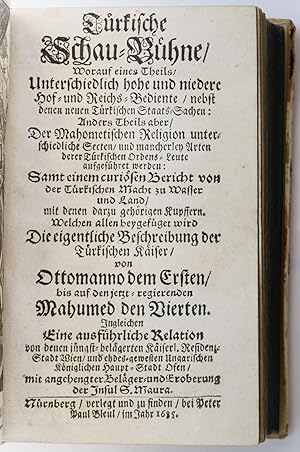 Türkische
Schau-Bühne/
Worauf eines Theils/
Unterschiedlich hohe und niedere
Hof- und Reichs-Bediente/ nebst
denen neuen Türkischen Staats-Sachen:
Anders Theils aber/
Der Mahometischen Religion unter-
schiedliche Secten/ und mancherley Arten
derer Türkischen Ordens-Leute
aufgeführet werden:
Samt einem curiösen Bericht von
der Türkischen Macht zu Wasser
und Land/
mit denen darzu gehörigen Kupffern.
Welchen allen beygefüget wird
Die eigentliche Beschreibung der
Türkischen Käiser/
von
Ottomanno dem Ersten/
bis auf den jetzt-regierenden
Mahumed den Vierten.
Ingleichen
Eine ausführliche Relation
von denen jüngst-belägerten Käiserl. Residenz-
Stadt Wien/ und ehdes-gewesten Ungarischen
Königlichen Haupt-Stadt Ofen/
mit angehengter Beläger- und Eroberung
der Insul S. Maura.
Nürnberg/ verlegt und zu finden/ bei Peter
Paul Bleul/ im Jahr 1685.